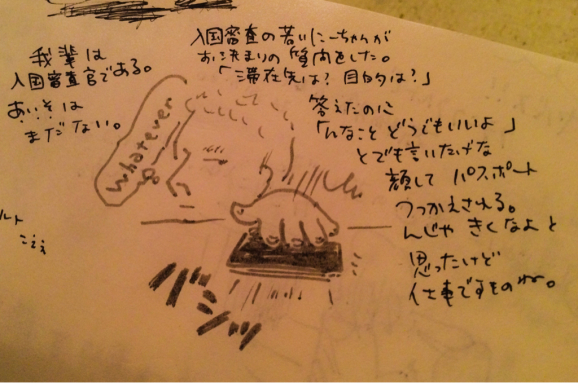 我輩は
入国審査官である。
あいそは
まだない。
入国審査の若いにーちゃんが
お決まりの質問をした。
「滞在先は？目的は？」
答えたのに
「んなことどうでもいいよ」
とでも言いたげな
顔して パスポート
つっかえされる。
んじゃ きくなよと
思ったけど
仕事ですものね。
whatever
バンッ
ルト
こえぇ